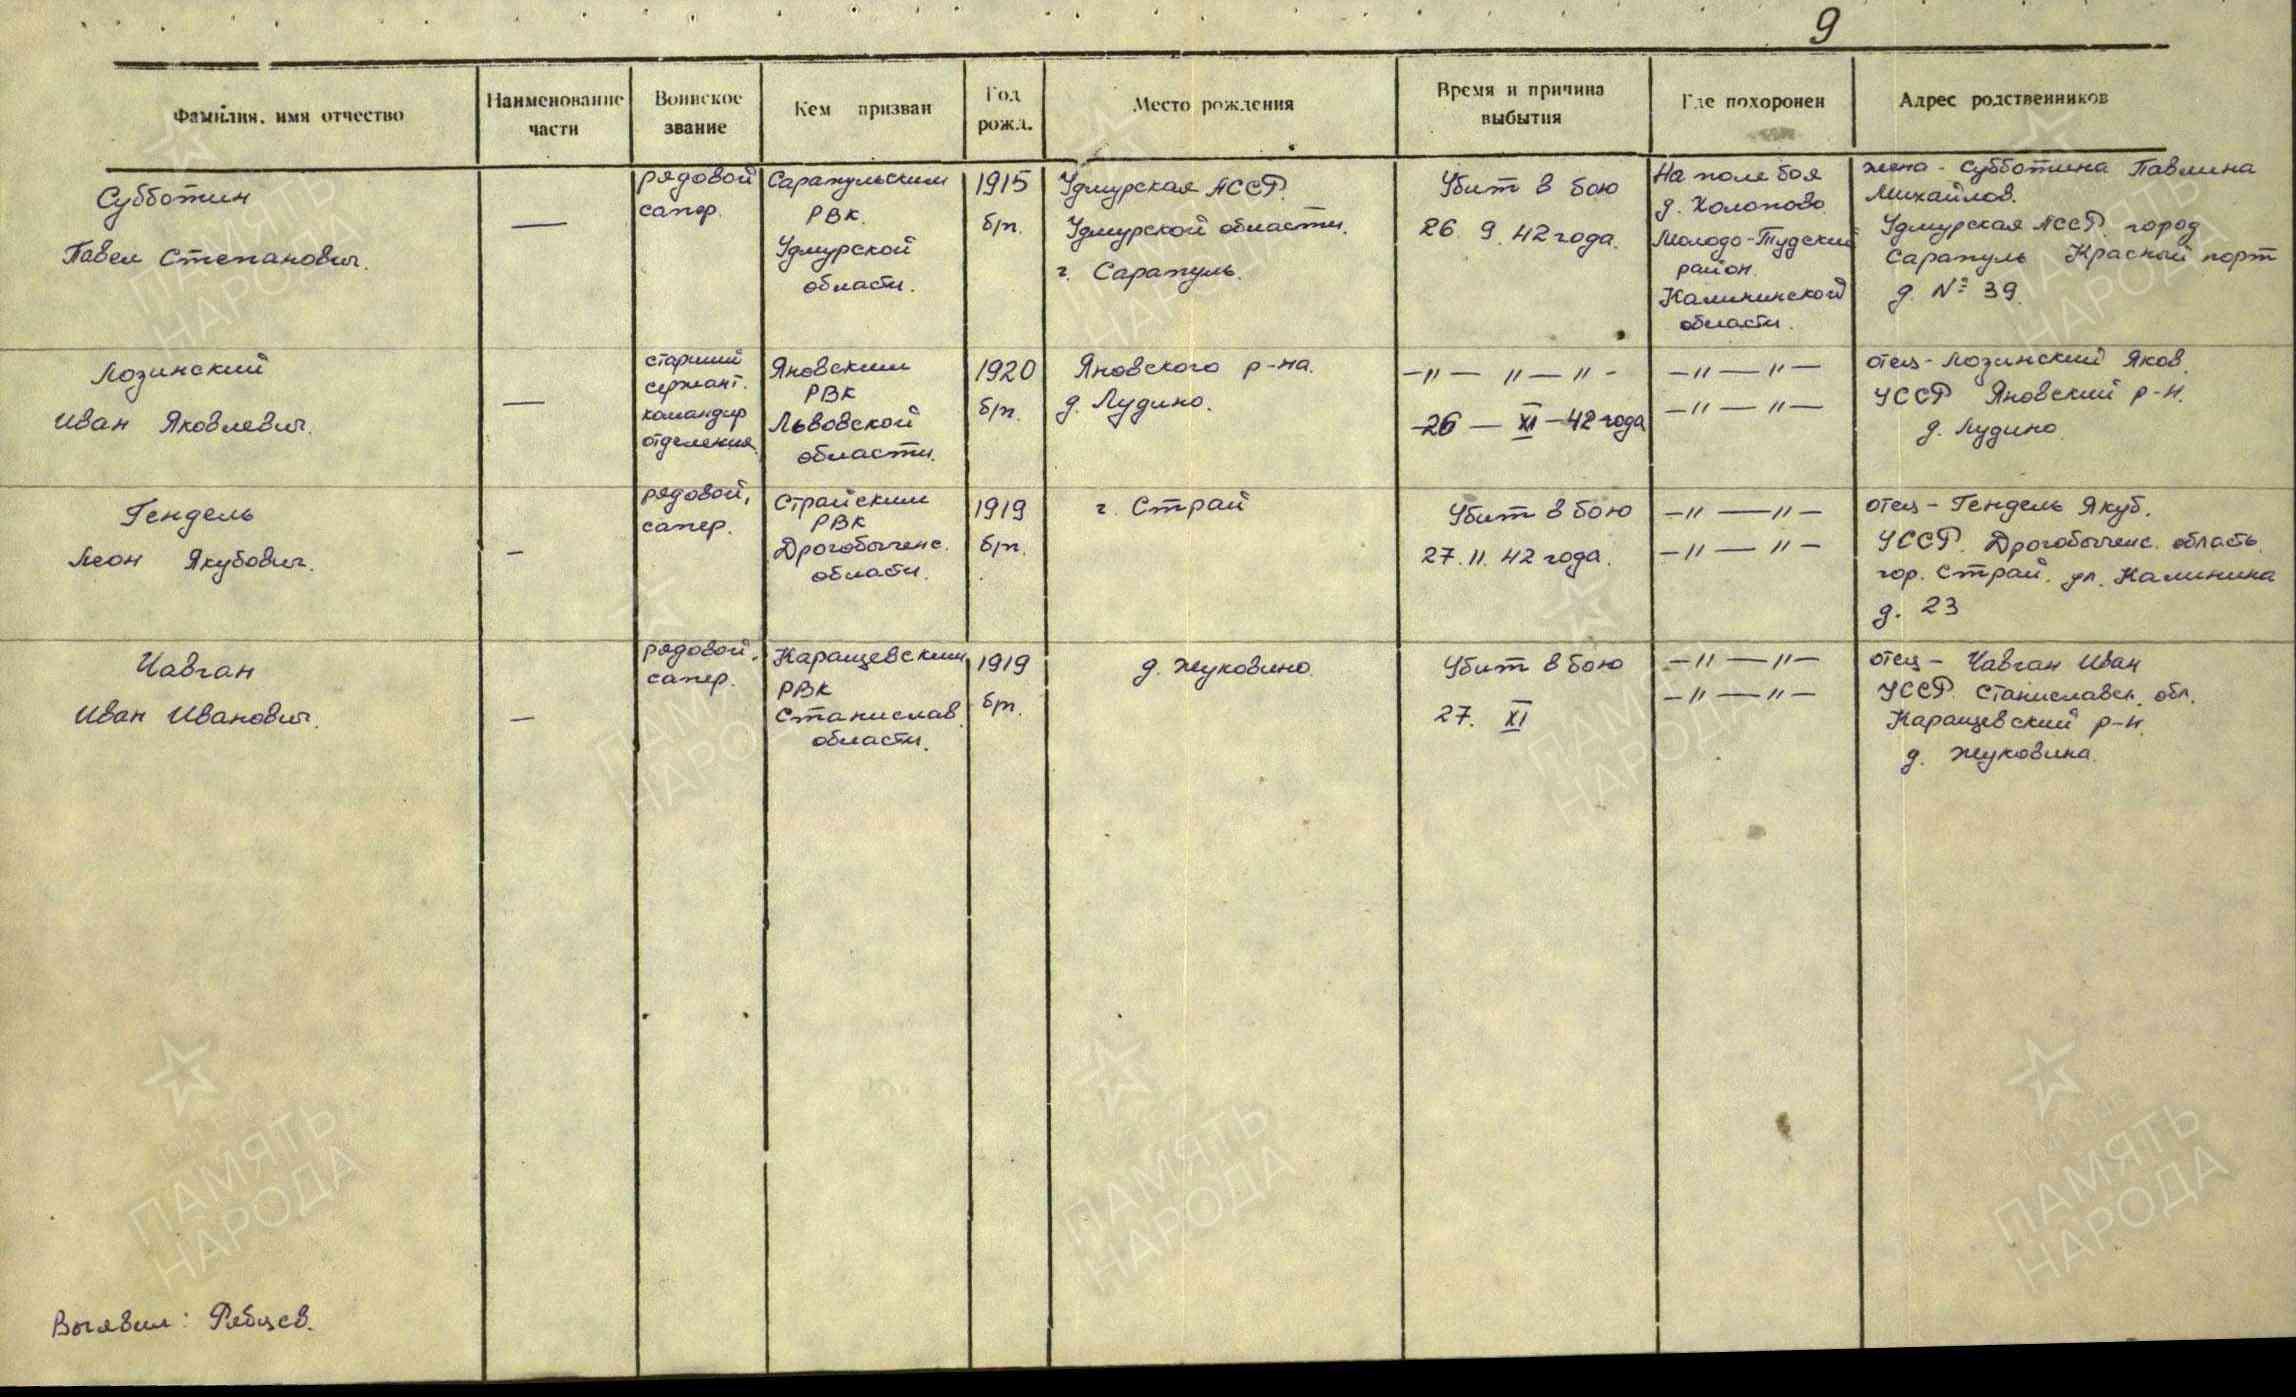 9
Фамилия, имя отчество
Наименование
части
Воинское
звание
Кем призван
Год
рожд.
Место рождения
Время и причина
выбытия
Где похоронен
Адрес родственников
Субботин
Павел Степанович.
—
рядовой
сапер.
Сарапульским
РВК.
Удмурской
области.
1915
б/п.
Удмурская АССР.
Удмурской области.
г. Сарапуль.
Убит в бою
26. 9. 42 года.
На поле боя
д. Холопово
Молодо-Тудский
район.
Калининской
области.
жена - Субботина Павлина
Михайлов.
Удмурская АССР. город
Сарапуль Красный порт
д. № 39.
Лозинский
Иван Яковлевич.
—
старший
сержант.
командир
отделения.
Яновским
РВК
Львовской
области.
1920
б/п.
Яновского р-на.
д. Лудино.
—"— "—"—
26 — XI — 42 года
—"—"—
—"—"—
отец - Лозинский Яков.
УССР Яновский р-н.
д. Лудино
Гендель
Леон Якубович.
—
рядовой,
сапер.
Страйским
РВК
Дрогобыченс.
области.
1919
б/п.
г. Страй
Убит в бою
27. 11. 42 года.
—"—"—
—"—"—
отец - Гендель Якуб.
УССР. Дрогобыченс. область.
гор. Страй. ул. Калинина
д. 23
Чавган
Иван Иванович.
—
рядовой.
сапер.
Каращевским
РВК
Станислав.
области.
1919
б/п.
д. Жуковино.
Убит в бою
27. XI
—"—"—
—"—"—
отец - Чавган Иван
УССР. Станиславск. обл.
Каращевский р-н.
д. Жуковина.
Выявил: Рябцев.
ПАМЯТЬ
НАРОДА